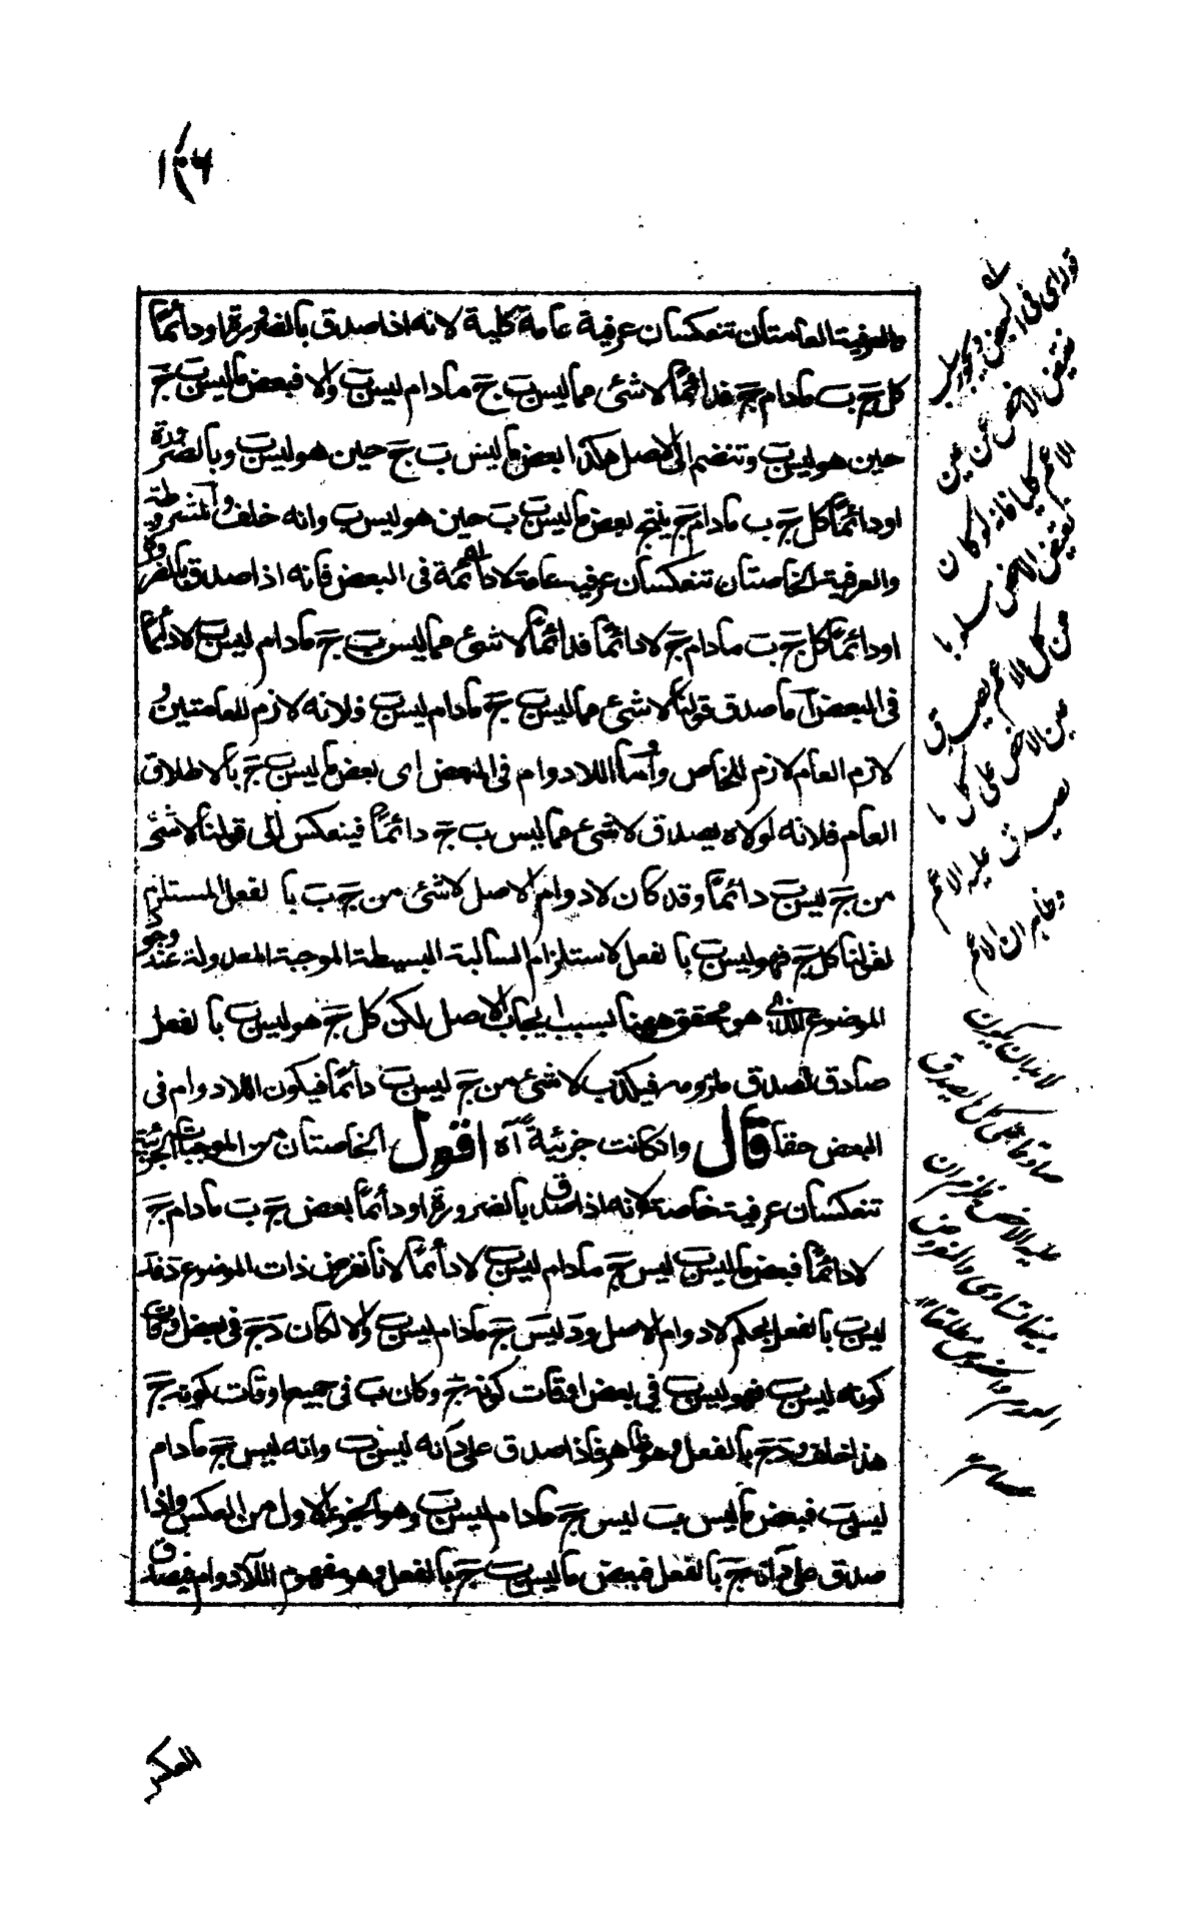 ١٣٦
والعرفية العامتان تنعكسان عرفية عامة كلية لانه اذا صدق بالضرورة او دائمًا
كل ج ب مادام ج فدائمًا لا شئ مما ليس ب ج مادام ليس ب والا فبعض ما ليس ب ج
حين هو ليس ب وتنضم الى الاصل هكذا بعض ما ليس ب ج حين هو ليس ب وبالضرورة
او دائمًا كل ج ب مادام ج ينتج بعض ما ليس ب ب حين هو ليس ب وانه خلف والمشروطة
والعرفية الخاصتان تنعكسان عرفية عامة لا دائمة فى البعض فانه اذا صدق بالضرورة
او دائمًا كل ج ب مادام ج لا دائمًا فدائمًا لا شئ مما ليس ب ج مادام ليس ب لا دائمًا
فى البعض اما صدق قولنا لا شئ مما ليس ب ج مادام ليس ب فلانه لازم للعامتين و
لازم العام لازم للخاص واما اللادوام فى البعض اى بعض ما ليس ب ج بالاطلاق
العام فلانه لولاه يصدق لا شئ مما ليس ب ج دائمًا فينعكس الى قولنا لا شئ
من ج ليس ب دائمًا وقد كان لا دوام الاصل لا شئ من ج ب بالفعل المستلزم
لقولنا كل ج فهو ليس ب بالفعل لاستلزام السالبة البسيطة الموجبة المعدولة عند وجود
الموضوع الذى هو محقق ههنا بسبب ايجاب الاصل لكن كل ج هو ليس ب بالفعل
صادق لصدق ملزومه فيكذب لا شئ من ج ليس ب دائمًا فيكون اللادوام فى
البعض حقا قال وان كانت جزئية آه اقول الخاصتان من الموجبات الجزئية
تنعكسان عرفية خاصة لانه اذا صدق بالضرورة او دائمًا بعض ج ب مادام ج
لا دائمًا فبعض ما ليس ب ليس ج مادام ليس ب لا دائمًا لانا نفرض ذات الموضوع د فد
ليس ب بالفعل بحكم لا دوام الاصل ود ليس ج مادام ليس ب والا لكان د ج فى بعض اوقات
كونه ليس ب فهو ليس ب فى بعض اوقات كونه ج وكان ب فى جميع اوقات كونه ج
هذا خلف ود ج بالفعل وهو ظاهر فاذا صدق على د انه ليس ب وانه ليس ج مادام
ليس ب فبعض ما ليس ب ليس ج مادام ليس ب وهو الجزء الاول من العكس واذا
صدق على د انه ج بالفعل فبعض ما ليس ب ج بالفعل وهو مفهوم اللادوام فيصدق
العكس
نقيض الاخص عن عين
الاعم كليا فانه لو كان
نقيض الاخص مسلوبا
عن كل الاعم يصدق
عين الاخص على كل ما
يصدق عليه الاعم
وظاهر ان الاعم
لا بد ان يكون
صادقا على كل ما يصدق
عليه الاخص فلزم ان
بينهما تساوى والمفروض